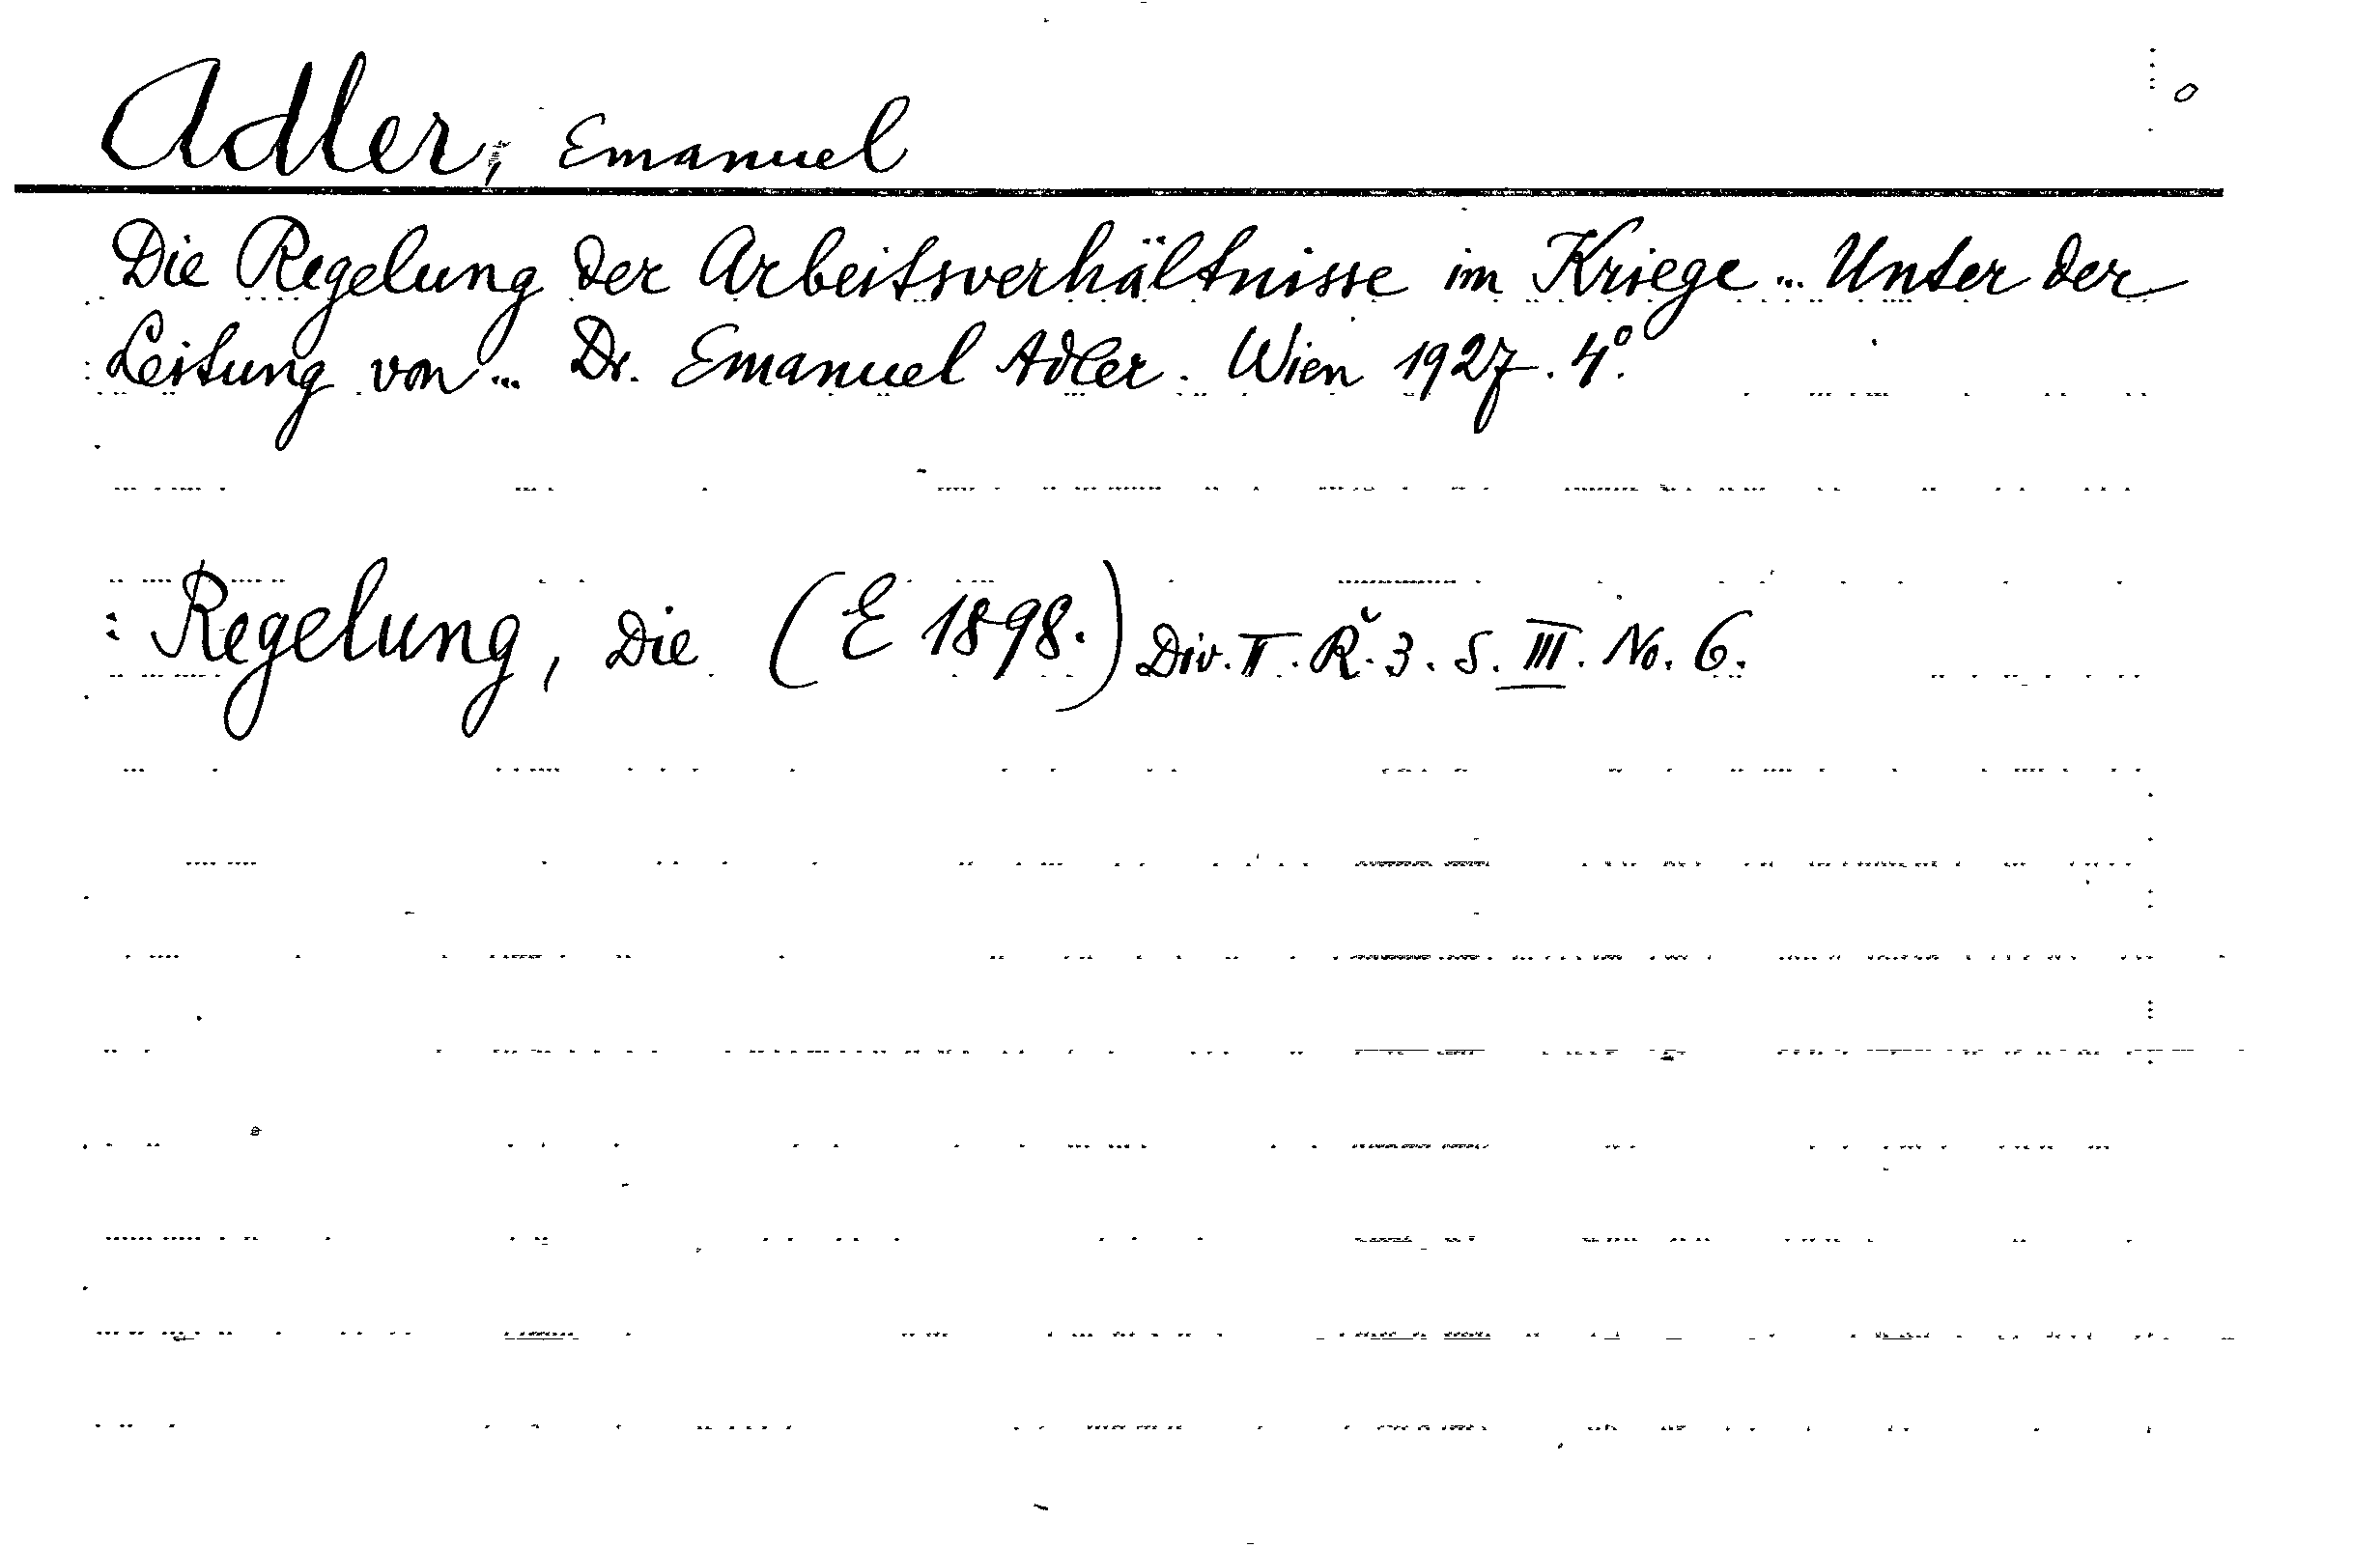 Adler, Emanuel
Die Regelung der Arbeitsverhältnisse im Kriege... Unter der
Leitung von... Dr. Emanuel Adler. Wien 1927. 4°.
Regelung, Die (E 1898.) Div. II. Ř. 3. S. III. No. 6.